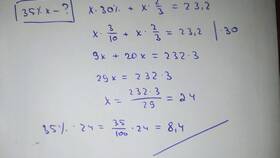 35% x - ?
x · 30% + x · 2/3 = 23,2
x · 3/10 + x · 2/3 = 23,2 | · 30
9x + 20x = 232 · 3
29x = 232 · 3
x = 232 · 3 / 29 = 24
35% · 24 = 35/100 · 24 = 8,4